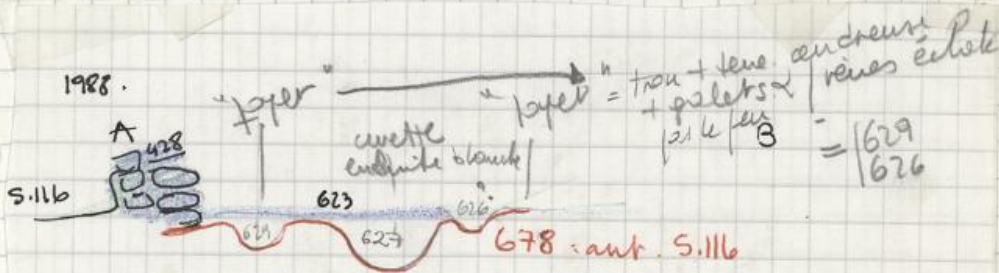 1988.
"foyer" → "foyer" = trou + terre cendreuse
+ galets
par le feu
= 629
626
A
B
428
cuvette
enduite blanche
S.116
623
626
629
627
678 : ant. S.116